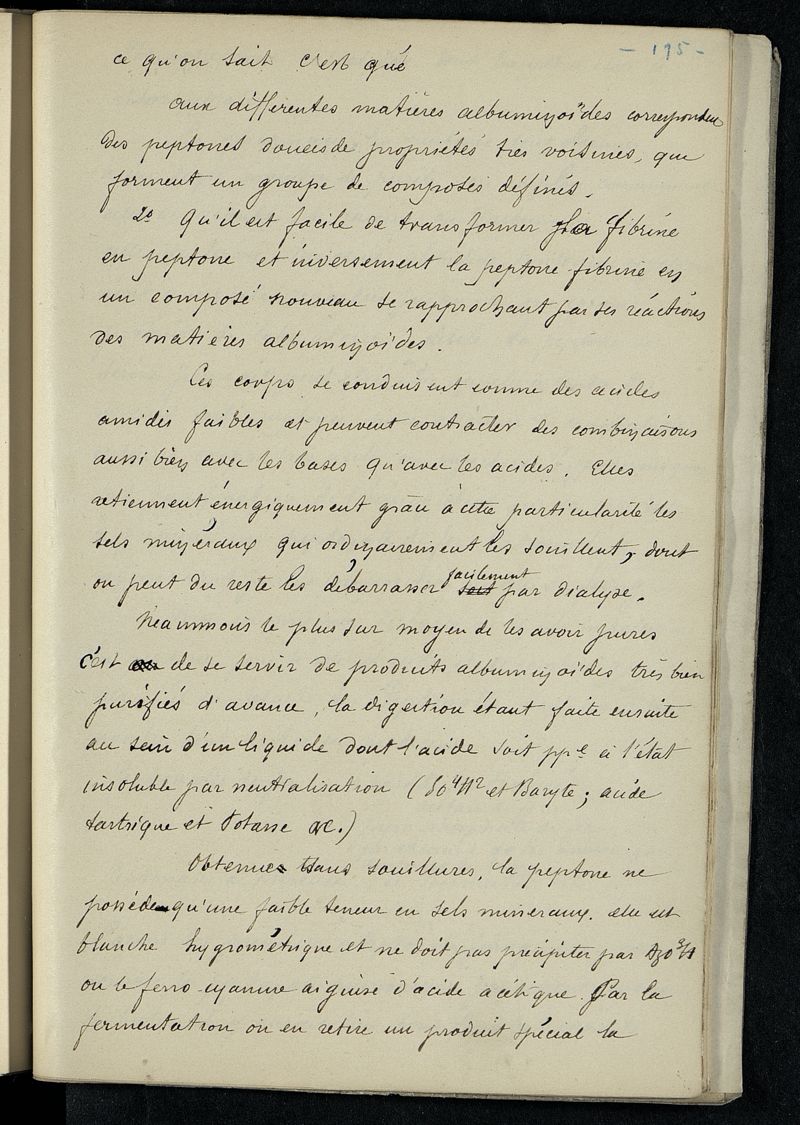 - 195 -
ce qu'on sait c'est qué
aux différentes matières albuminoïdes correspondent
des peptones douéis de propriétés très voisines, que
forment un groupe de composés définis.
2° Qu'il est facile de transformer la fibrine
en peptone et inversement la peptone fibrine en
un composé nouveau se rapprochant par ses réactions
des matières albuminoïdes.
Ces corps se conduisent comme des acides
amidés faibles et peuvent contracter des combinaisons
aussi bien avec les bases qu'avec les acides. Elles
retiennent énergiquement grâce à cette particularité les
sels minéraux qui ordinairement les souillent, dont
on peut du reste les débarrasser facilement par dialyse.
Neanmoins le plus sur moyen de les avoir pures
c'est de se servir de produits albuminoïdes très bien
purifiés d'avance, la digestion étant faite ensuite
au sein d'un liquide dont l'acide soit ppé à l'état
insoluble par neutralisation (SO⁴H² et Baryte; acide
tartrique et Potasse &c.)
Obtenue sans souillures, la peptone ne
possède qu'une faible teneur en sels mineraux. elle est
blanche hygrométrique et ne doit pas précipiter par AzO³H
ou le ferro-cyanure aiguisé d'acide acétique. Par la
fermentation on en retire un produit spécial la